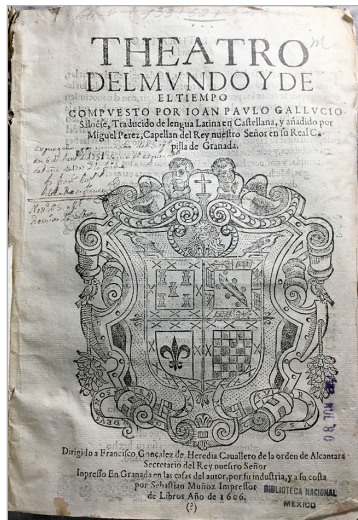 THEATRO
DELMVNDO Y DE
EL TIEMPO
COMPVESTO POR IOAN PAVLO GALLVCIO
Saloëse, Traducido de lengua Latina en Castellana, y añadido por
Miguel Perez, Capellan del Rey nuestro Señor en su Real Ca-
pilla de Granada.
Dirigido a Francisco Gonçalez de Heredia Cauallero de la orden de Alcantara
Secretario del Rey nuestro Señor
Inpresso En Granada en las casas del autor, por su industria, y a su costa
por Sebastian Muñoz Impressor
de Libros Año de 1606.
(?)
BIBLIOTECA NACIONAL
MEXICO